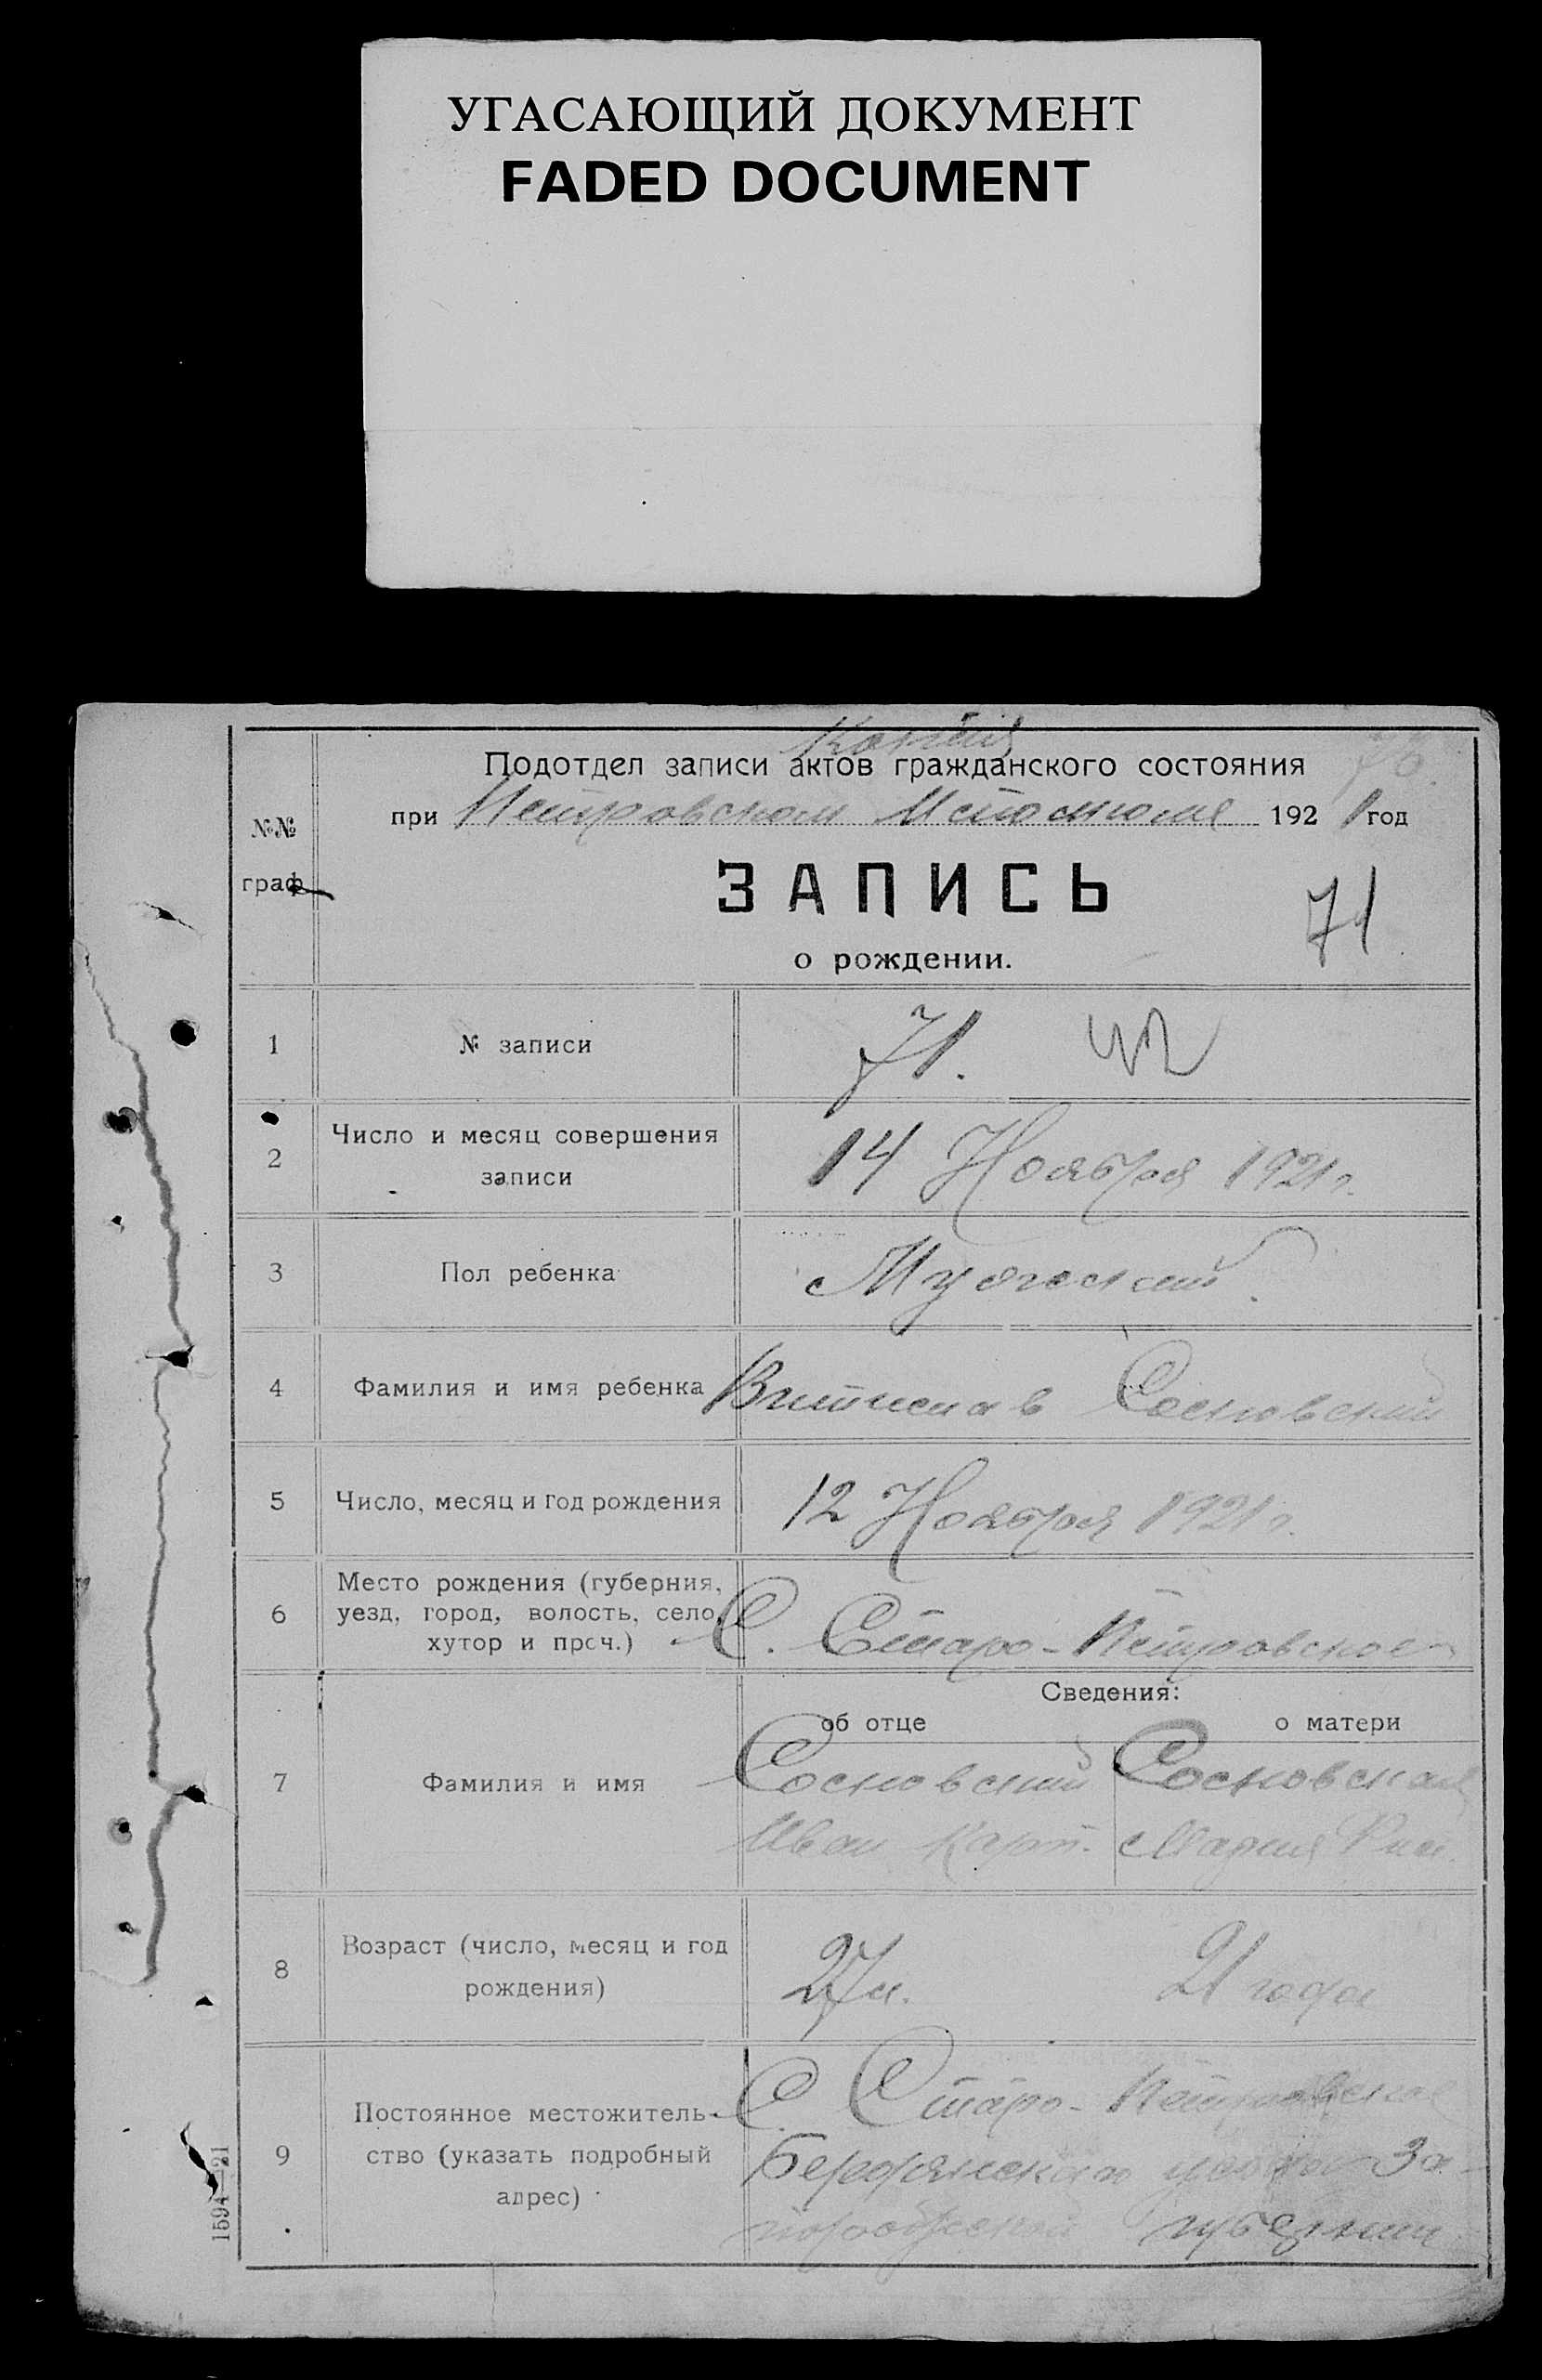 УГАСАЮЩИЙ ДОКУМЕНТ
FADED DOCUMENT
Копия
Подотдел записи актов гражданского состояния
при Петровском Исполкоме 1921 год
№№
граф
ЗАПИСЬ
71
о рождении.
1 № записи 71.
2 Число и месяц совершения
записи
14 Ноября 1921 г.
3 Пол ребенка Мужеский.
4 Фамилия и имя ребенка Сосновский
5 Число, месяц и год рождения 12 Ноября 1921 г.
6 Место рождения (губерния,
уезд, город, волость, село,
хутор и проч.)
С. Старо-Петровское
Сведения:
об отце о матери
7 Фамилия и имя
Сосновский Сосновская
Иван Карп. Мария
8 Возраст (число, месяц и год
рождения)
27 л. 21 года
9 Постоянное местожитель-
ство (указать подробный
адрес)
С. Старо-Петровское
Бердянского уезда За-
порожской губернии
1594—21